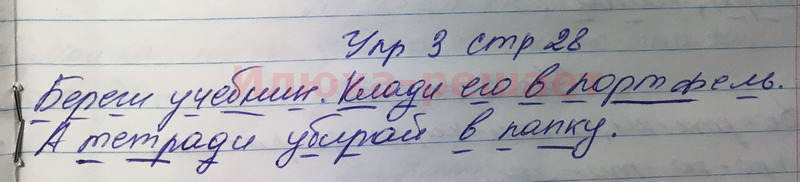 Упр 3 стр 28
Илюха-решает
Береги учебник. Клади его в портфель.
А тетради убирай в папку.